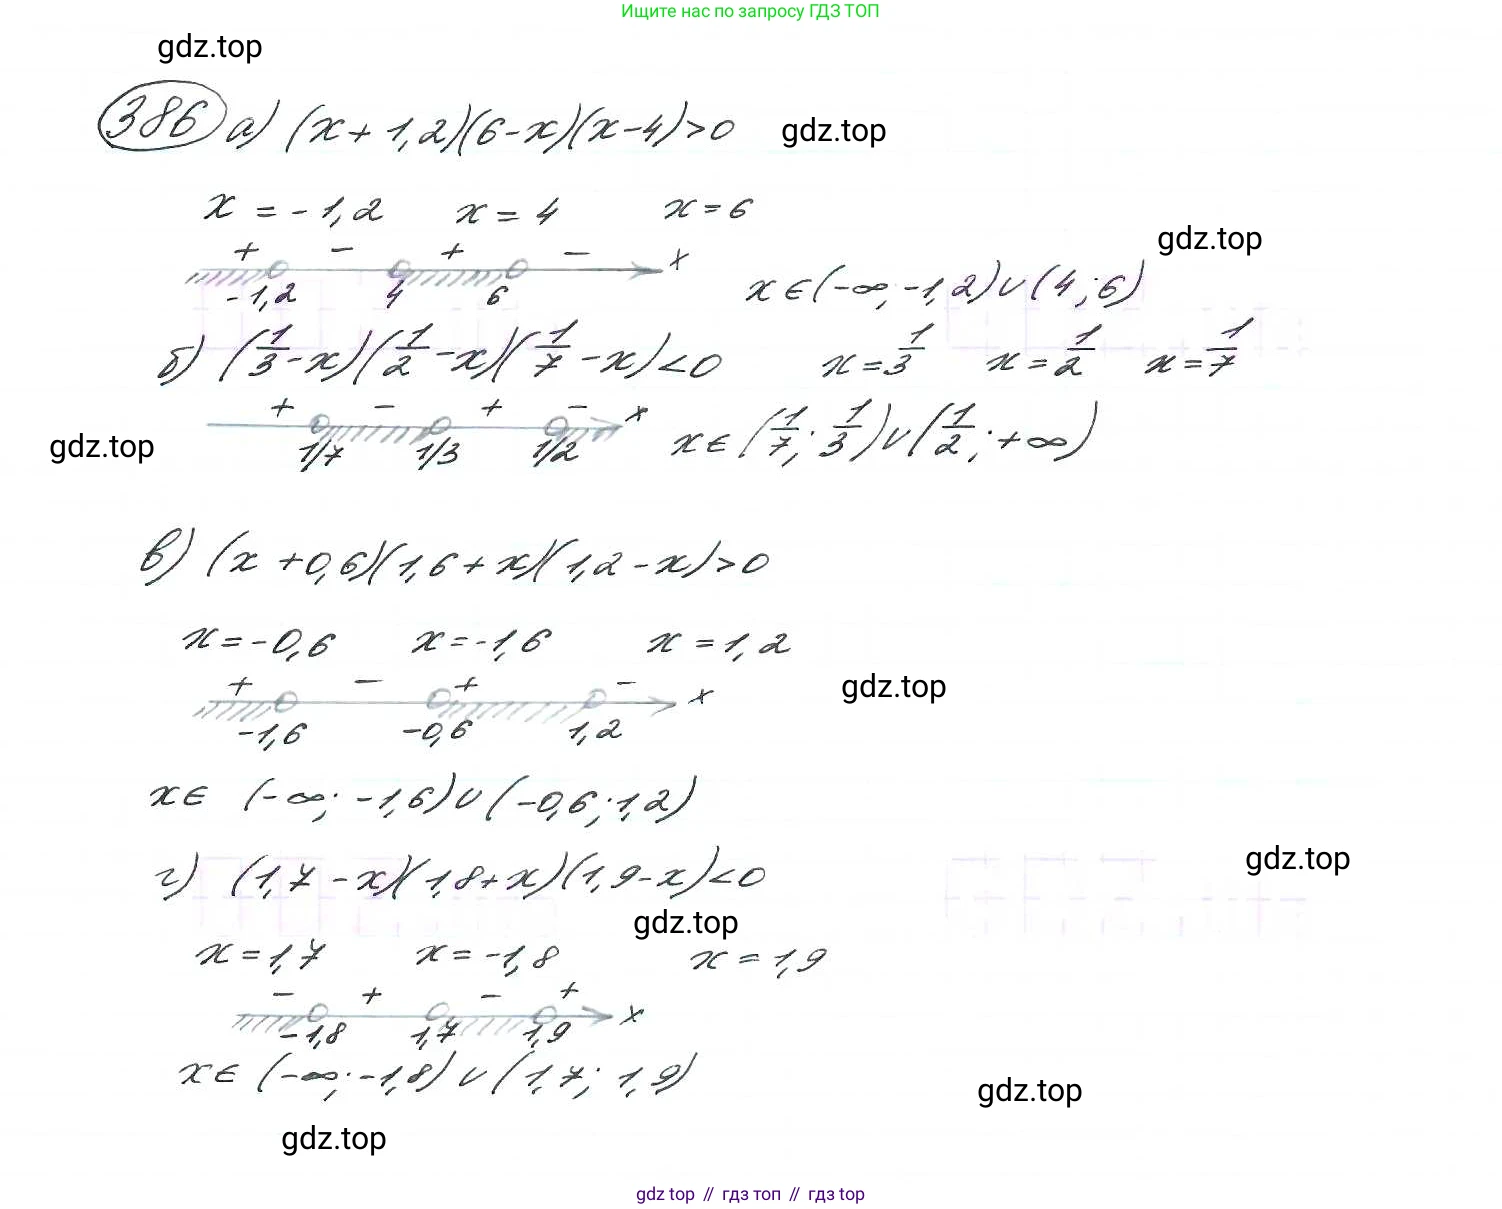 Ищите нас по запросу ГДЗ ТОП
gdz.top
386 а) (x + 1,2)(6-x)(x-4)>0 gdz.top
x = -1,2 x = 4 x = 6
+ - + - x gdz.top
-1,2 4 6 x ∈ (-∞; -1,2) ∪ (4; 6)
б) (1/3 - x)(1/2 - x)(1/7 - x) < 0 x = 1/3 x = 1/2 x = 1/7
+ - + - x
gdz.top 1/7 1/3 1/2 x ∈ (1/7; 1/3) ∪ (1/2; +∞)
в) (x + 0,6)(1,6 + x)(1,2 - x) > 0
x = -0,6 x = -1,6 x = 1,2
+ - + - x gdz.top
-1,6 -0,6 1,2
x ∈ (-∞; -1,6) ∪ (-0,6; 1,2)
gdz.top
г) (1,7 - x)(1,8 + x)(1,9 - x) < 0
gdz.top
x = 1,7 x = -1,8 x = 1,9
- + - + x
-1,8 1,7 1,9
x ∈ (-∞; -1,8) ∪ (1,7; 1,9)
gdz.top
gdz.top
gdz top // гдз топ // гдз top